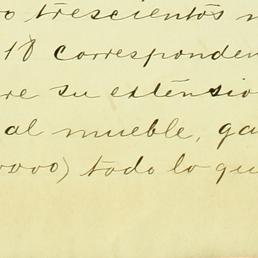 o trescientos n
10 corresponden
re su extensio
al mueble, ga
0000) todo lo qu